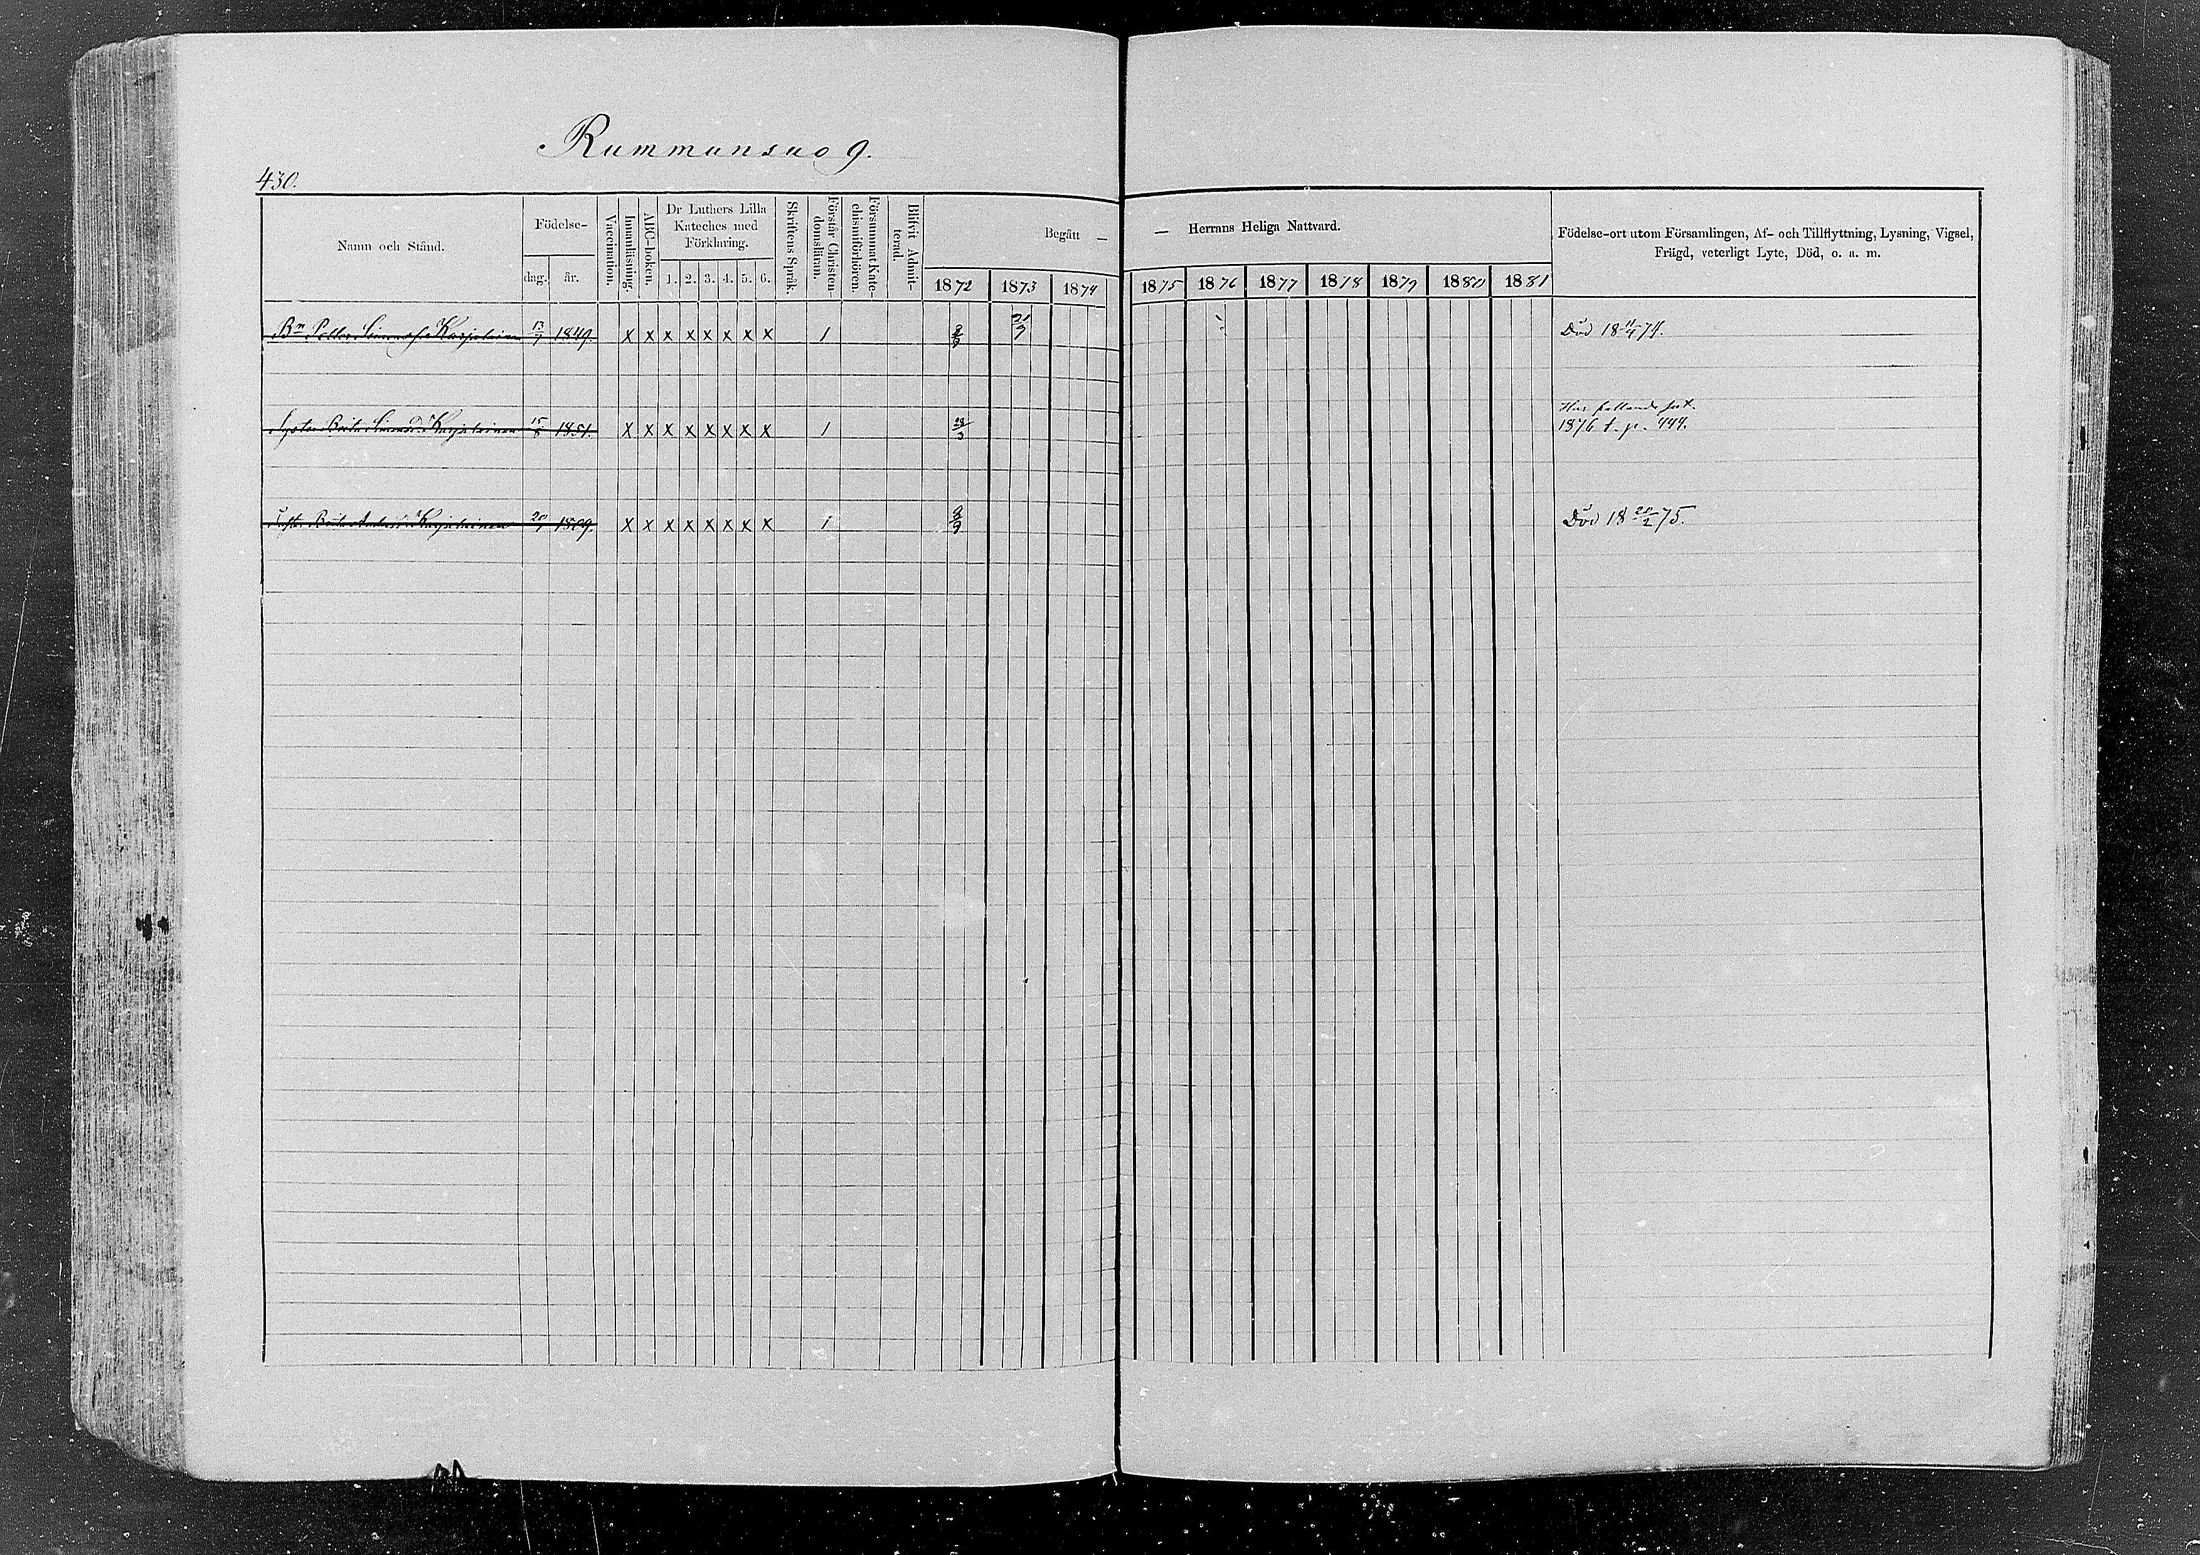 Rummunsuo 9.
430.
Namn och Stånd.
Födelse-
dag. år.
Vaccination.
Innanläsning.
ABC-boken.
Dr Luthers Lilla
Kateches med
Förklaring.
1. 2. 3. 4. 5. 6.
Skriftens Språk.
Förstår Christen-
domsläran.
Försummat Kate-
chismiförhören.
Blifvit Admit-
terad.
Begått — — Herrans Heliga Nattvard.
1872 1873 1874 1875 1876 1877 1878 1879 1880 1881
Födelse-ort utom Församlingen, Af- och Tillflyttning, Lysning, Vigsel,
Frägd, veterligt Lyte, Död, o. a. m.
Karjalainen 13/7 1849. x x x x x x x x 1 8/9 21/9 Död 18 11/4 74.
Har fallande sot.
Syster Brita Karjalainen 15/8 1851. x x x x x x x x 1 1876 t. p. 444.
Brita Karjalainen 1809. x x x x x x x x 1 8/9 Död 18 20/2 75.